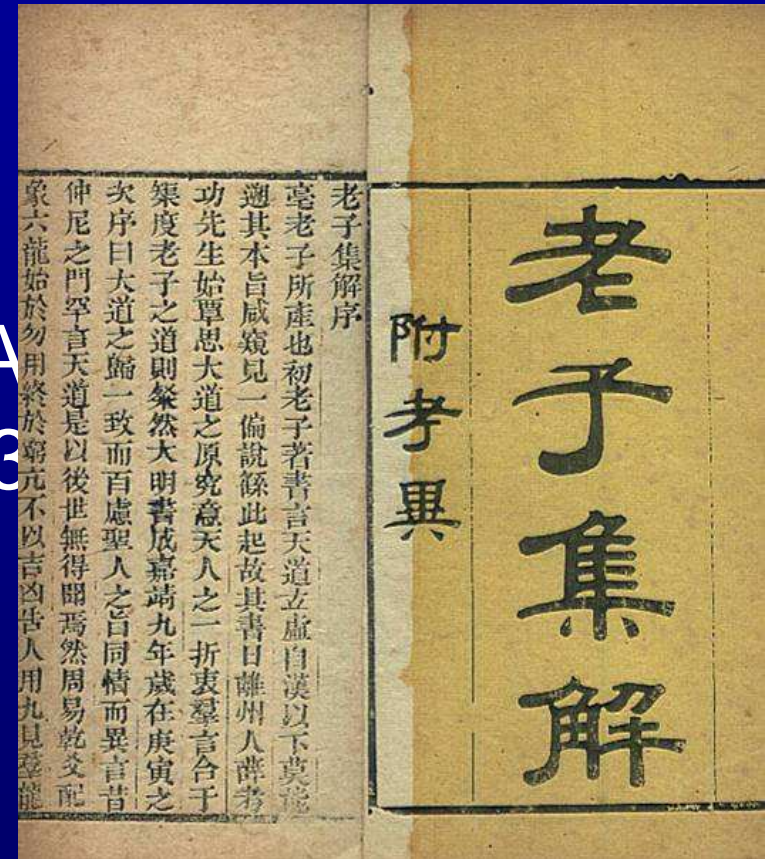 老子集解
附考異
老子集解序
亳老子所產也初老子著書言天道玄虛自漢以下莫能
遡其本旨咸窺見一偏說繇此起故其書日離州人薛考
功先生始覃思大道之原究意天人之一折衷羣言合于
榘度老子之道則粲然大明書成嘉靖九年歲在庚寅之
次序曰大道之歸一致而百慮聖人之旨同情而異言昔
仲尼之門罕言天道是以後世無得聞焉然周易乾爻配
象六龍始於勿用終於窮亢不以吉凶告人用九見羣龍